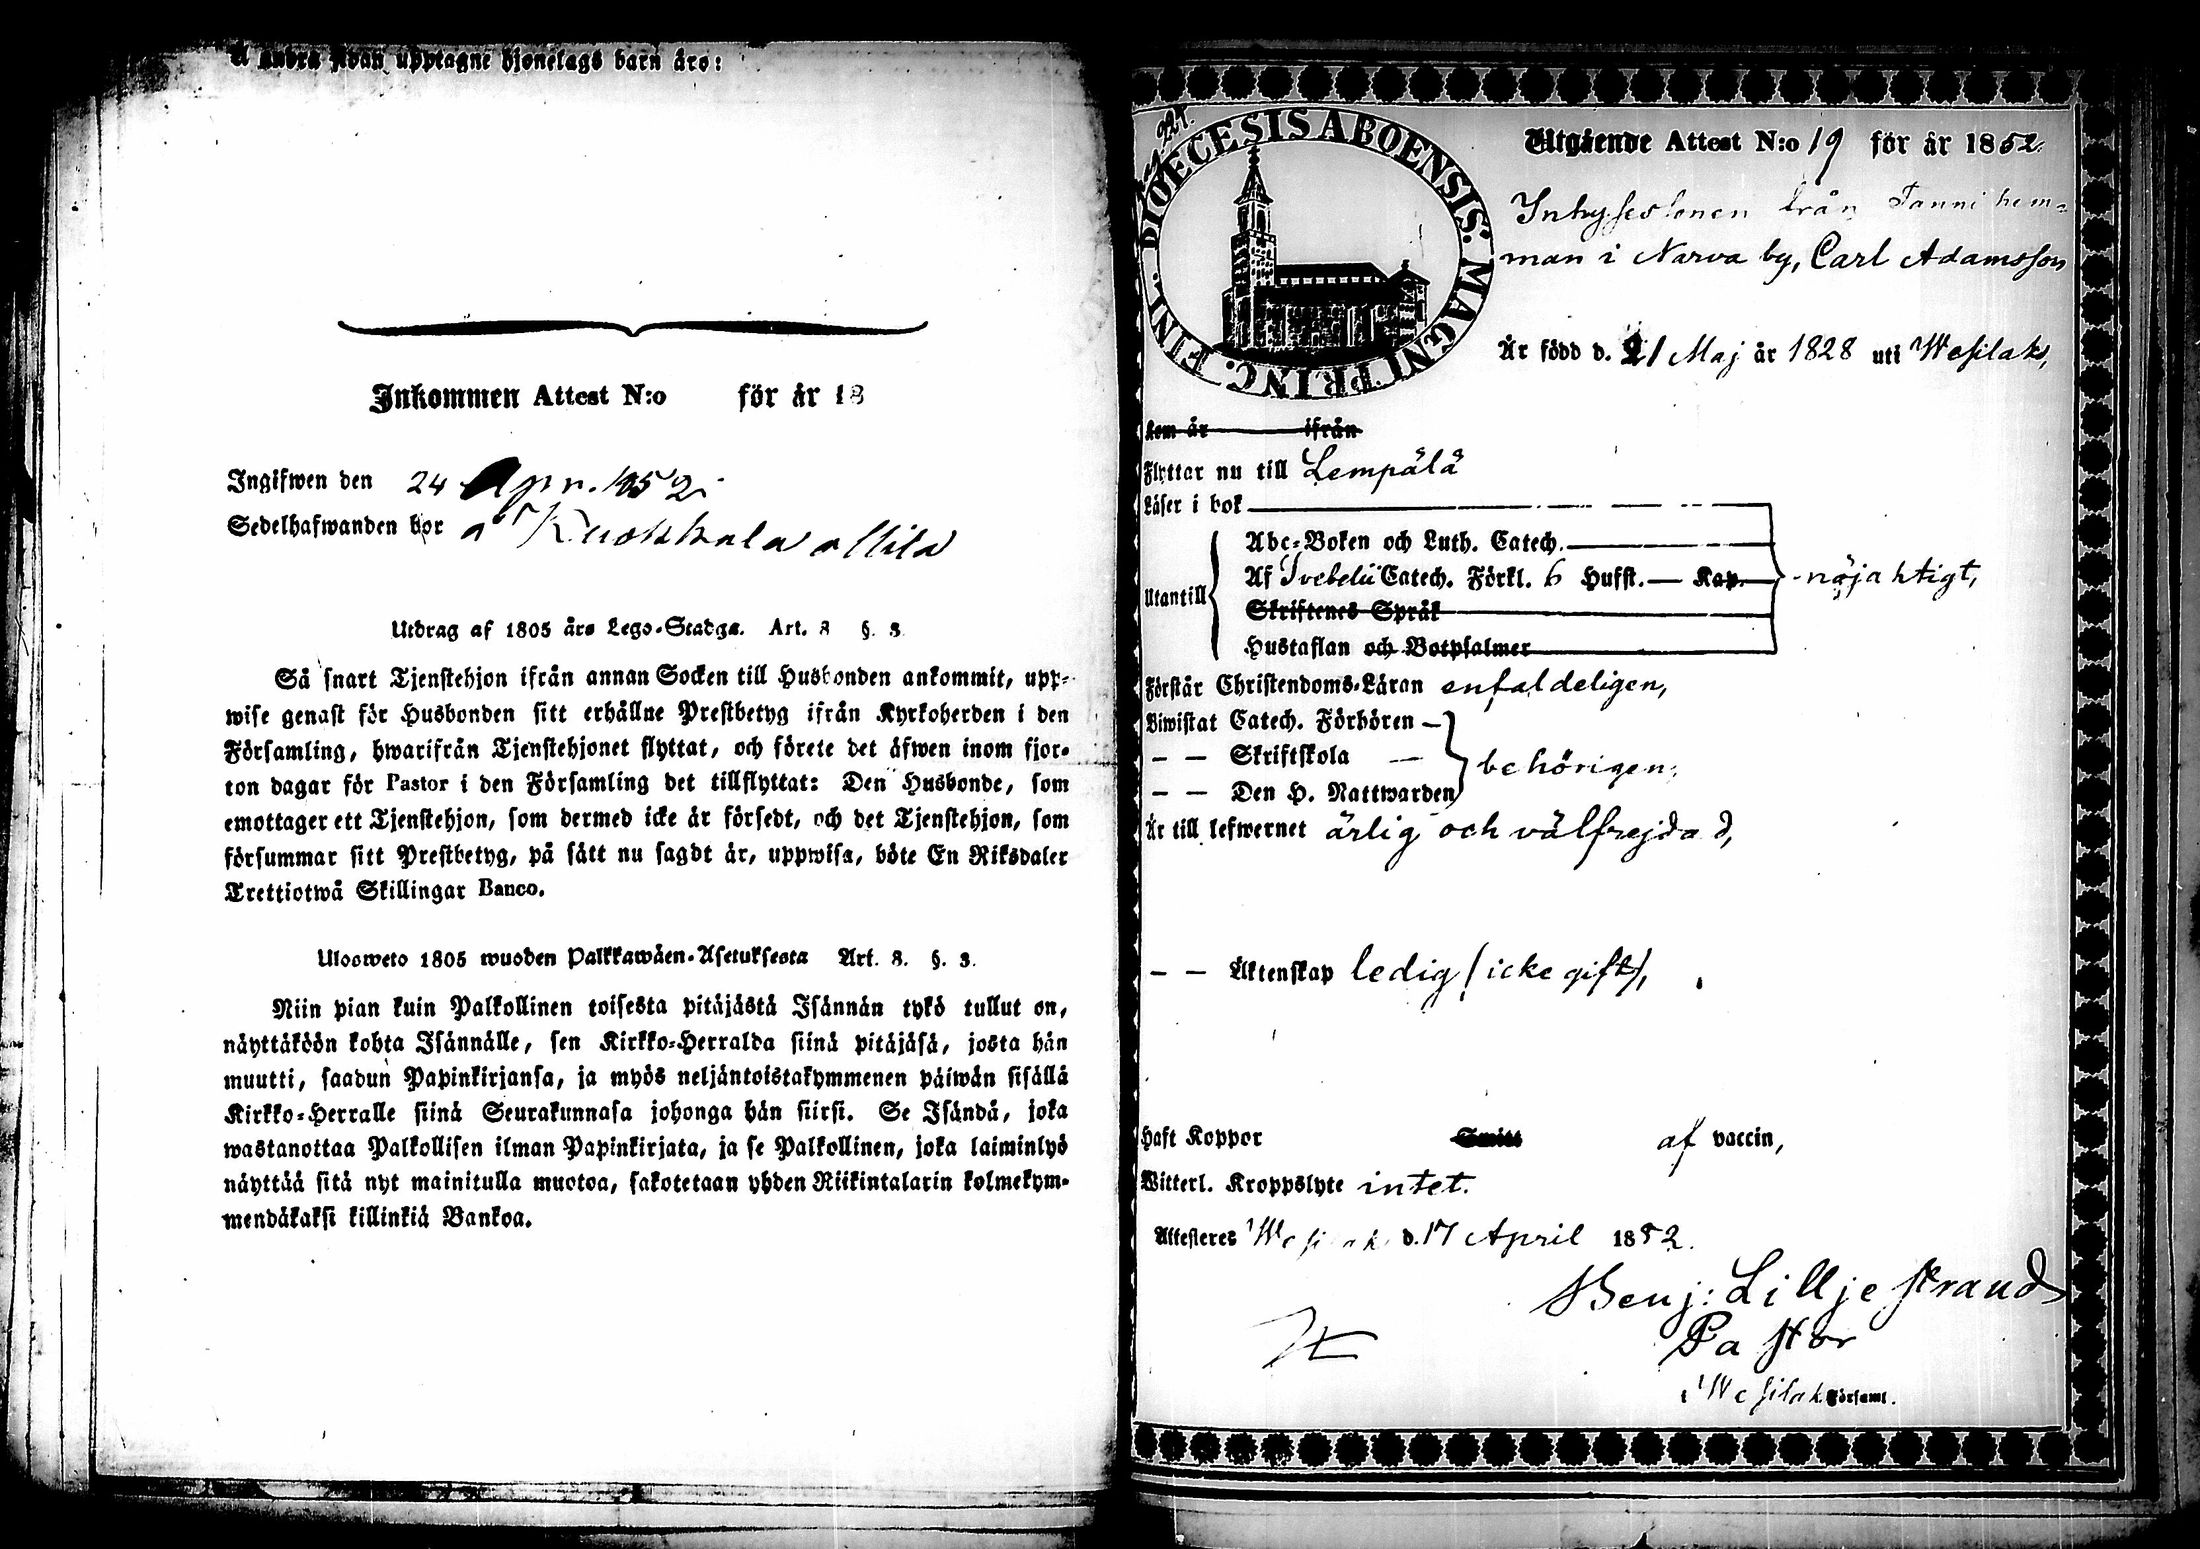 andra ofvan upptagne hjonelags barn äro:
Inkommen Attest N:o för år 18
Ingifwen den 24 Apr. 1852.
Sedelhafwanden bor å Kuokkala
Utdrag af 1805 års Lego-Stadga. Art. 8 §. 3.
Så snart Tjenstehjon ifrån annan Socken till Husbonden ankommit, upp-
wise genast för Husbonden sitt erhållne Prestbetyg ifrån Kyrkoherden i den
Församling, hwarifrån Tjenstehjonet flyttat, och förete det äfwen inom fjor-
ton dagar för Pastor i den Församling det tillflyttat: Den Husbonde, som
emottager ett Tjenstehjon, som dermed icke är försedt, och det Tjenstehjon, som
försummar sitt Prestbetyg, på sätt nu sagdt är, uppwisa, böte En Riksdaler
Trettiotwå Skillingar Banco.
Uloosweto 1805 wuoden Palkkawäen-Asetuksesta Art. 8. §. 3.
Niin pian kuin Palkollinen toisesta pitäjästä Isännän tykö tullut on,
näyttäköön kohta Isännälle, sen Kirkko-Herralda siinä pitäjäsä, josta hän
muutti, saadun Papinkirjansa, ja myös neljäntoistakymmenen päiwän sisällä
Kirkko-Herralle siinä Seurakunnasa johonga hän siirsi. Se Isändä, joka
wastanottaa Palkollisen ilman Papinkirjata, ja se Palkollinen, joka laiminlyö
näyttää sitä nyt mainitulla muotoa, sakotetaan yhden Riikintalarin kolmekym-
mendäkaksi killinkiä Bankoa.
DIOECESIS ABOENSIS. MAGNI PRINC. FINL.
Utgående Attest N:o 19 för år 1852.
Inhyssesonen från Tanni hem-
man i Narva by, Carl Adamsson
Är född d. 21 Maj år 1828 uti Wesilaks,
Kom år ifrån
Flyttar nu till Lempälä
Läser i bok
Abc-Boken och Luth. Catech.
Utantill Af Svebelii Catech. Förkl. 6 Hufst. Kap. nöjaktigt,
Skriftenes Språk
Hustaflan och Botpsalmer
Förstår Christendoms-Läran enfaldeligen,
Biwistat Catech. Förhören
— — Skriftskola behörigen,
— — Den H. Nattwarden
Är till lefwernet ärlig och välfrejdad,
— — Äktenskap ledig (icke gift),
Haft Koppor Smitt af vaccin,
Witterl. Kroppslyte intet.
Attesteres Wesilaks d. 17 April 1852.
Benj: Lilljestrand
Pastor
i Wesilaks Församl.